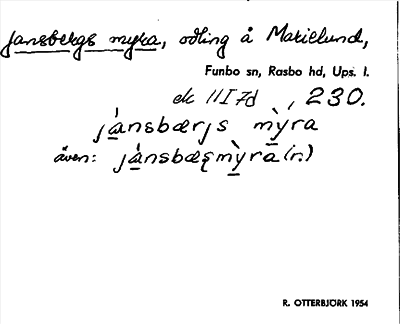 Jansbergs myra, odling å Marielund,
Funbo sn, Rasbo hd, Ups. l.
ek 11I7d, 230.
jánsbærjs mỳra
även: jánsbæʂmỳra (r.)
R. OTTERBJÖRK 1954